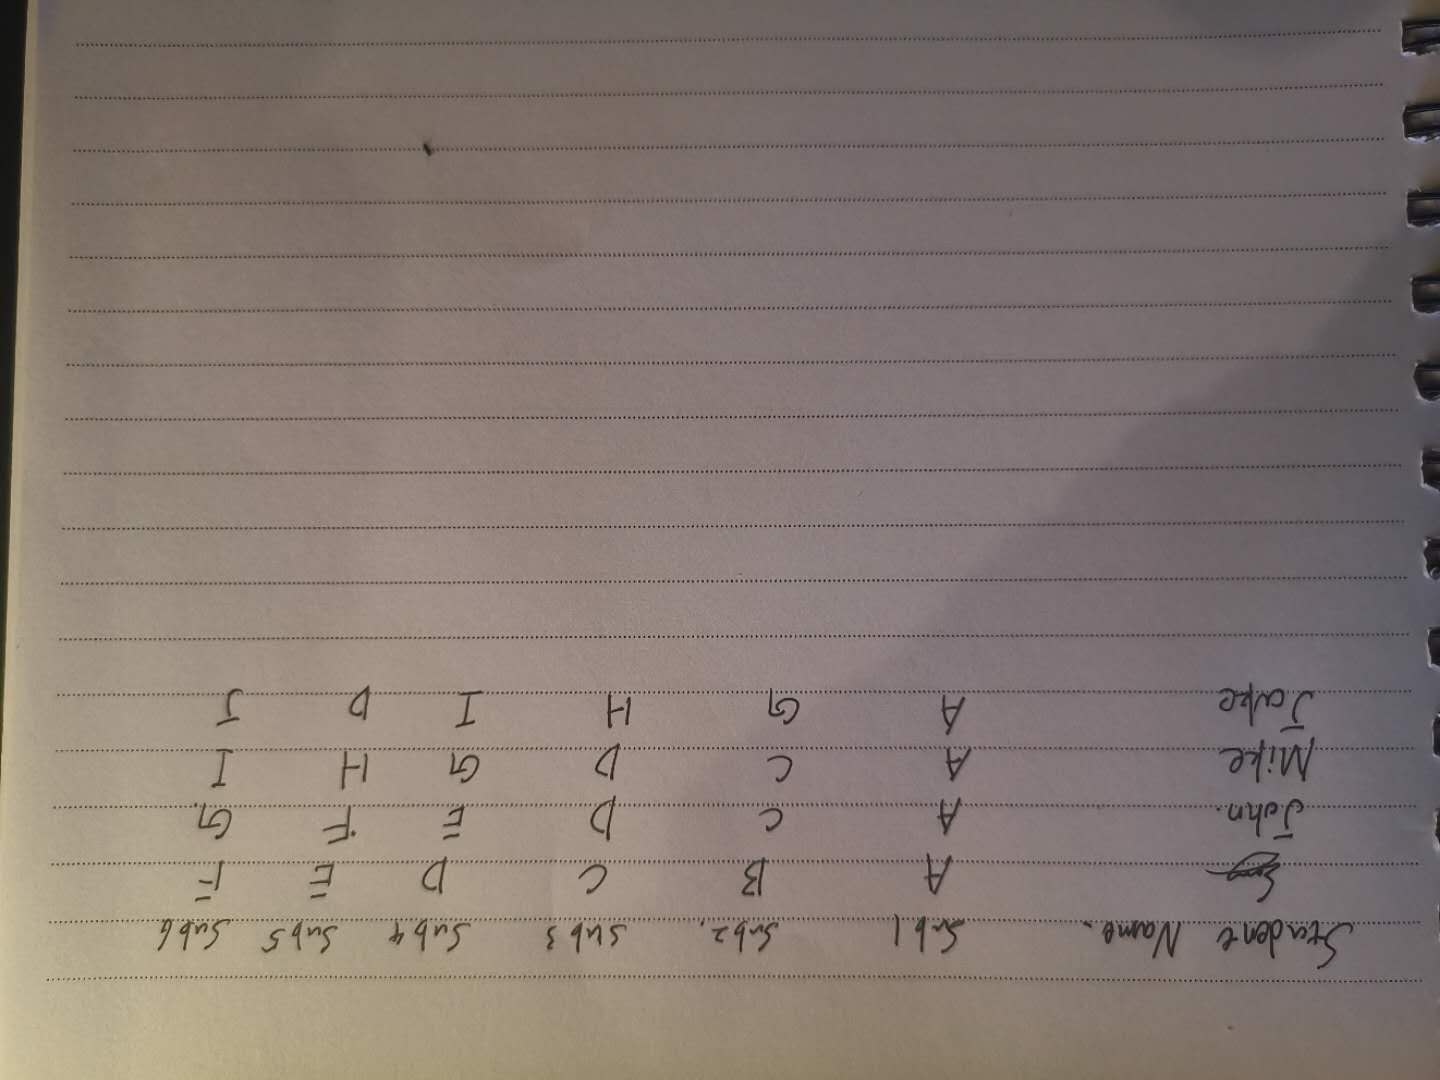 Student Name. Sub1 Sub2. Sub3 Sub4 Sub5 Sub6
A B C D E F
John. A C D E F G.
Mike A C D G H I
Jake A G H I D J